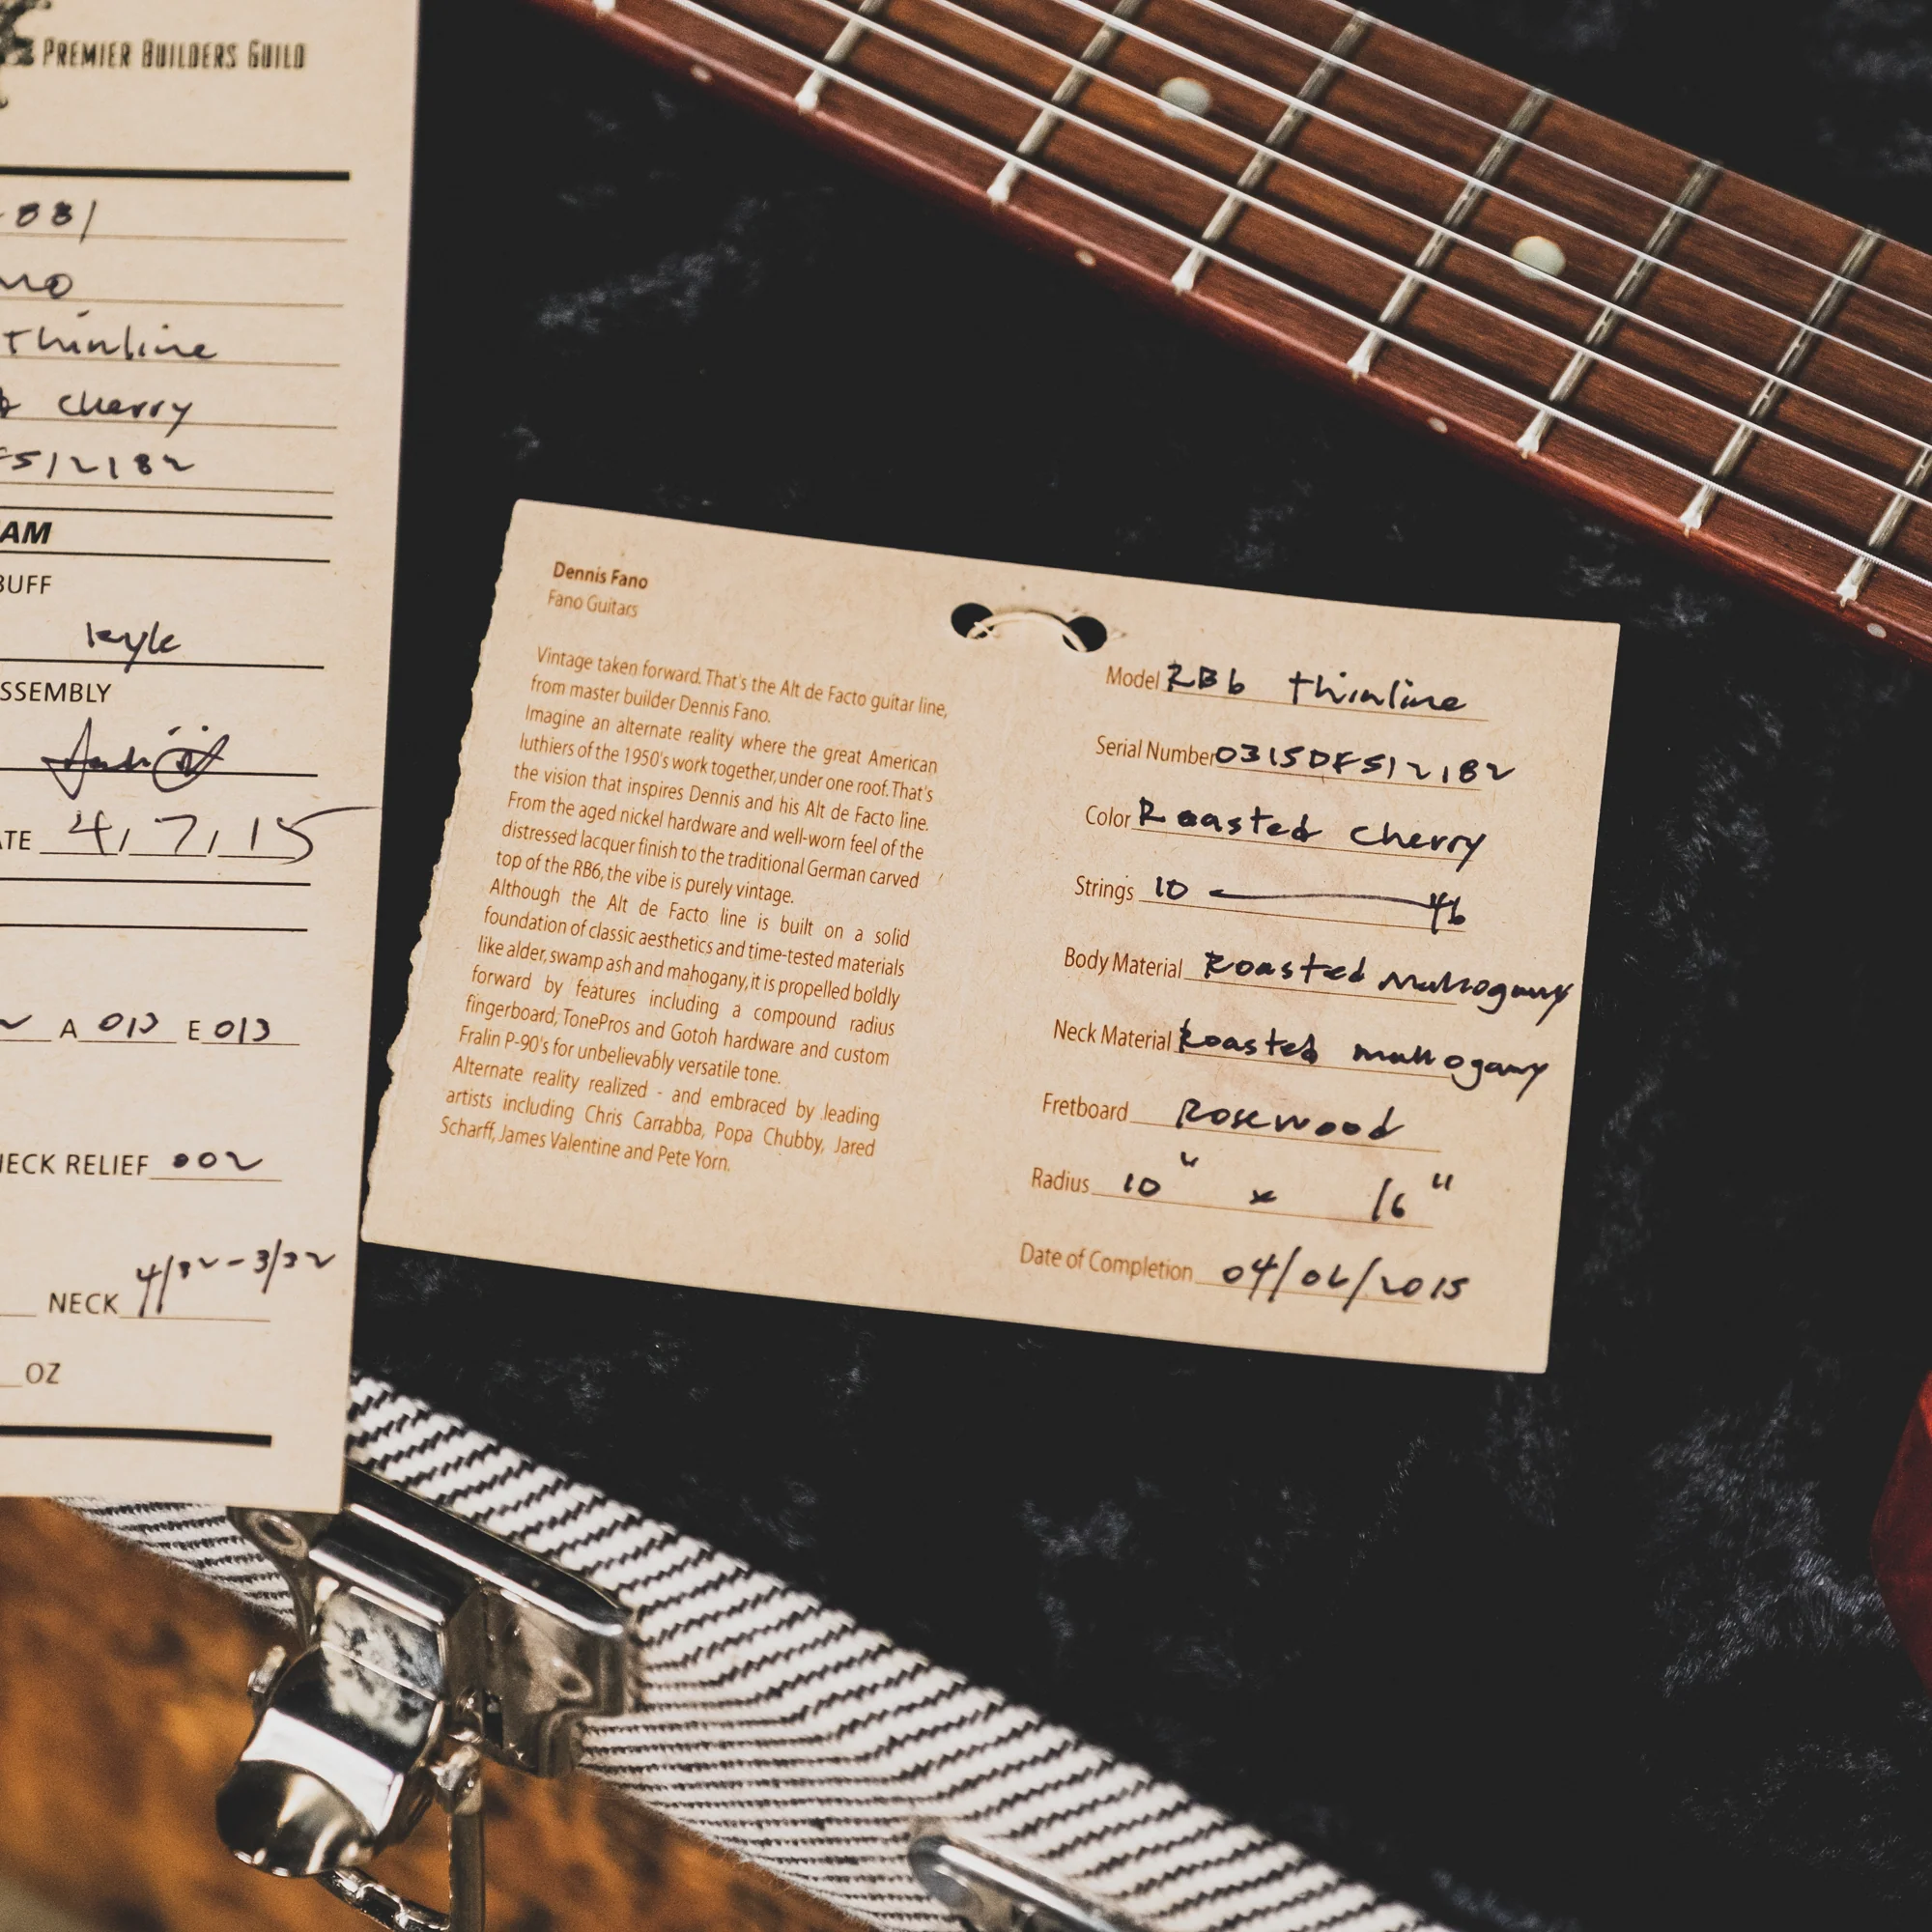 PREMIER BUILDERS GUILD
881
Thinline
Cherry
512182
AM
BUFF
Kyle
SSEMBLY
ATE 4/7/15
A 013 E 013
NECK RELIEF .002
NECK 4/32-3/32
OZ
Dennis Fano
Fano Guitars
Vintage taken forward. That's the Alt de Facto guitar line,
from master builder Dennis Fano.
Imagine an alternate reality where the great American
luthiers of the 1950's work together, under one roof. That's
the vision that inspires Dennis and his Alt de Facto line.
From the aged nickel hardware and well-worn feel of the
distressed lacquer finish to the traditional German carved
top of the RB6, the vibe is purely vintage.
Although the Alt de Facto line is built on a solid
foundation of classic aesthetics and time-tested materials
like alder, swamp ash and mahogany, it is propelled boldly
forward by features including a compound radius
fingerboard, TonePros and Gotoh hardware and custom
Fralin P-90's for unbelievably versatile tone.
Alternate reality realized - and embraced by leading
artists including Chris Carrabba, Popa Chubby, Jared
Scharff, James Valentine and Pete Yorn.
Model RB6 Thinline
Serial Number 0315DFS12182
Color Roasted Cherry
Strings 10 — 46
Body Material Roasted Mahogany
Neck Material Roasted mahogany
Fretboard Rosewood
Radius 10" x 16"
Date of Completion 04/06/2015